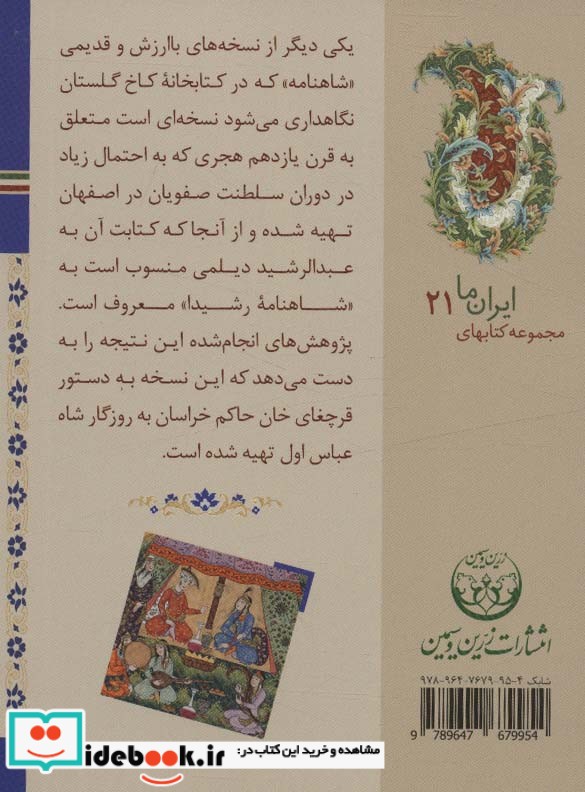 یکی دیگر از نسخه‌های باارزش و قدیمی
«شاهنامه» که در کتابخانهٔ کاخ گلستان
نگاهداری می‌شود نسخه‌ای است متعلق
به قرن یازدهم هجری که به احتمال زیاد
در دوران سلطنت صفویان در اصفهان
تهیه شده و از آنجا که کتابت آن به
عبدالرشید دیلمی منسوب است به
«شاهنامهٔ رشیدا» معروف است.
پژوهش‌های انجام‌شده این نتیجه را به
دست می‌دهد که این نسخه به دستور
قرچغای خان حاکم خراسان به روزگار شاه
عباس اول تهیه شده است.
ایران ما ۲۱
مجموعه کتابهای
زرین و سیمین
انتشارات زرین و سیمین
شابک ۴-۹۵-۷۶۷۹-۹۶۴-۹۷۸
9 789647 679954
مشاهده و خرید این کتاب در:
idebook.ir